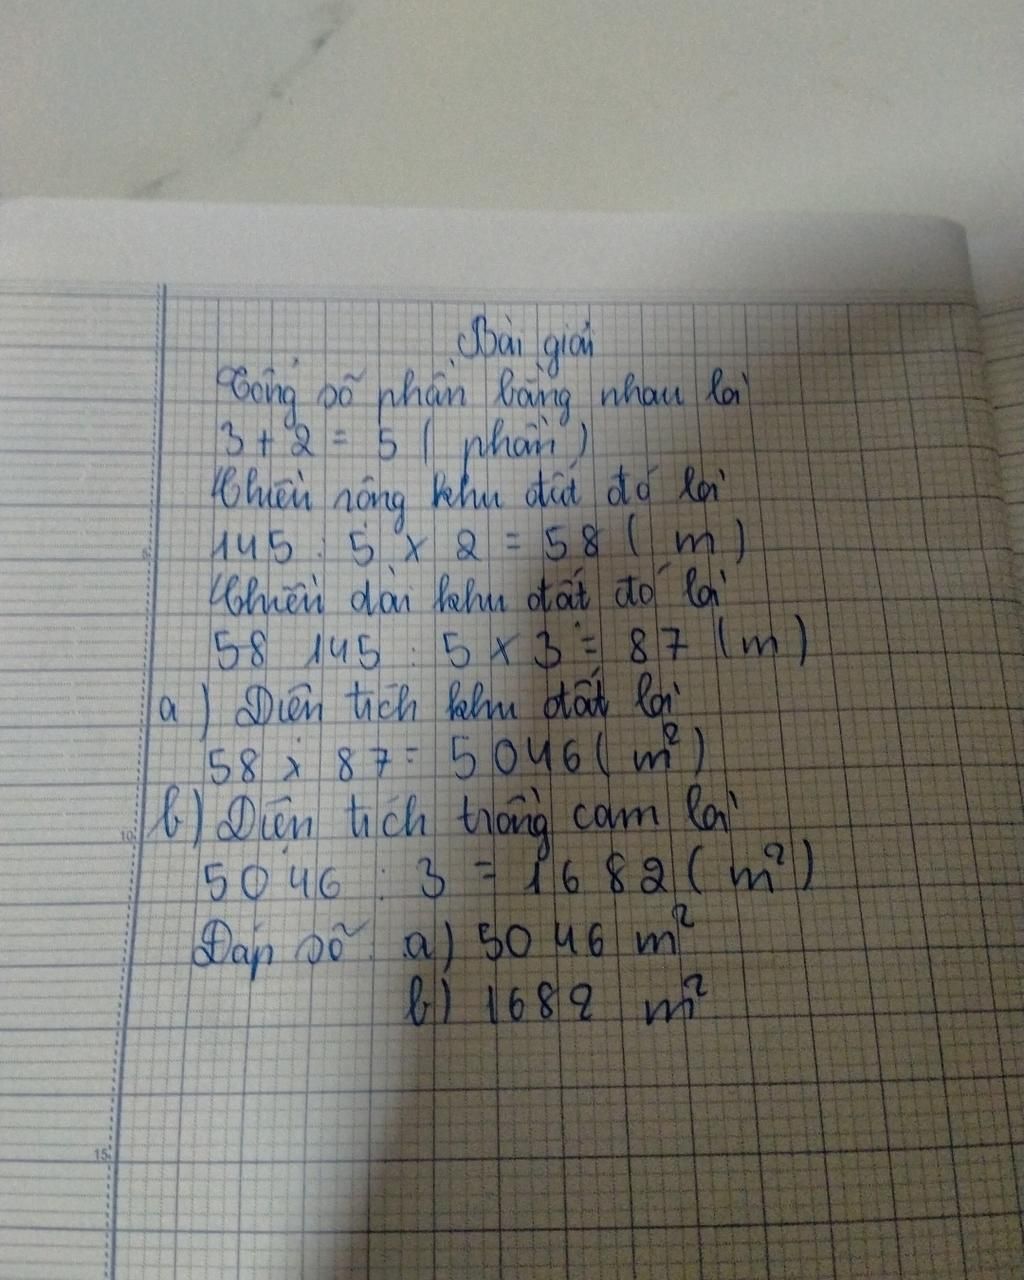 Bài giải
Tổng số phần bằng nhau là
3 + 2 = 5 ( phần )
Chiều rông khu đất đó là
145 : 5 x 2 = 58 ( m )
Chiều dài khu đất đó là
58 145 : 5 x 3 = 87 ( m )
a ) Diện tích khu đất là
58 x 87 = 5046 ( m² )
b ) Diện tích trồng cam là
5046 : 3 = 1682 ( m² )
Đáp số a ) 5046 m²
b ) 1682 m²
5
10
15